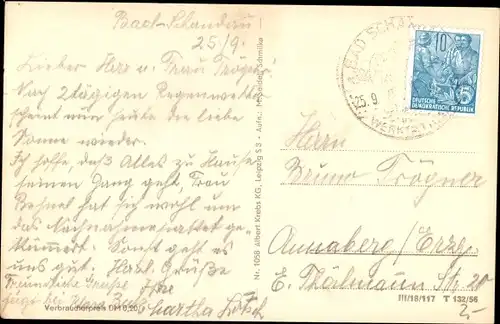 Bad-Schandau
25/9.
Lieber Herr u. Frau Trögner!
Nach 2tägigen Regenwetter
scheint nun heute die liebe
Sonne wieder.
Ich hoffe, daß Alles zu Hause
seinen Gang geht, Frau
hat sich wohl um
das Nachnahmepacket ge-
kümmert. Sonst geht es
uns gut. Herzl. Grüße
Freundliche Grüße Ihre
fügt bei Martha
Verbraucherpreis DM 0,20
Nr. 1058 Albert Krebs KG, Leipzig S 3 - Aufn.: Schmilka
BAD SCHANDAU
10
DEUTSCHE
DEMOKRATISCHE REPUBLIK
5
Herrn
Bruno Trögner
Annaberg/Erzg.
E. Thälmann Str. 20
III/18/117 T 132/56
2,-